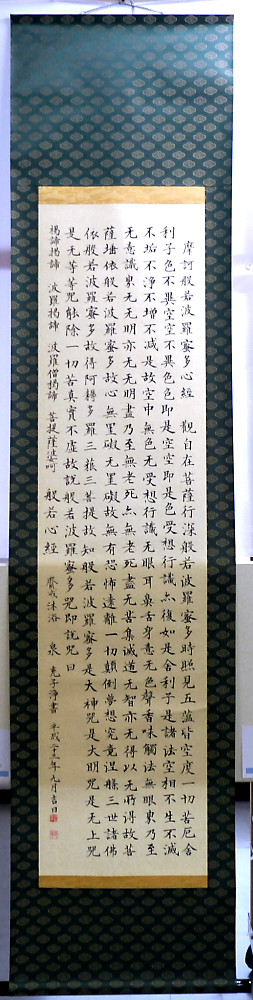 摩訶般若波羅蜜多心経　觀自在菩薩行深般若波羅蜜多時照見五蘊皆空度一切苦厄舎
利子色不異空空不異色色即是空空即是色受想行識亦復如是舎利子是諸法空相不生不滅
不垢不浄不増不減是故空中無色无受想行識无眼耳鼻舌身意无色聲香味觸法無眼界乃至
无意識界无無明亦无無明盡乃至無老死亦無老死盡无苦集滅道无智亦无得以无所得故菩
薩埵依般若波羅蜜多故心無罣礙无罣礙故無有恐怖遠離一切顛倒夢想究竟涅槃三世諸佛
依般若波羅蜜多故得阿耨多羅三藐三菩提故知般若波羅蜜多是大神咒是大明咒是无上咒
是无等等咒能除一切苦真實不虚故説般若波羅蜜多咒即説咒曰
揭諦揭諦　波羅揭諦　波羅僧揭諦　菩提薩婆呵　般若心経　齋戒沐浴　泉　克子浄書　平成二十三年九月吉日